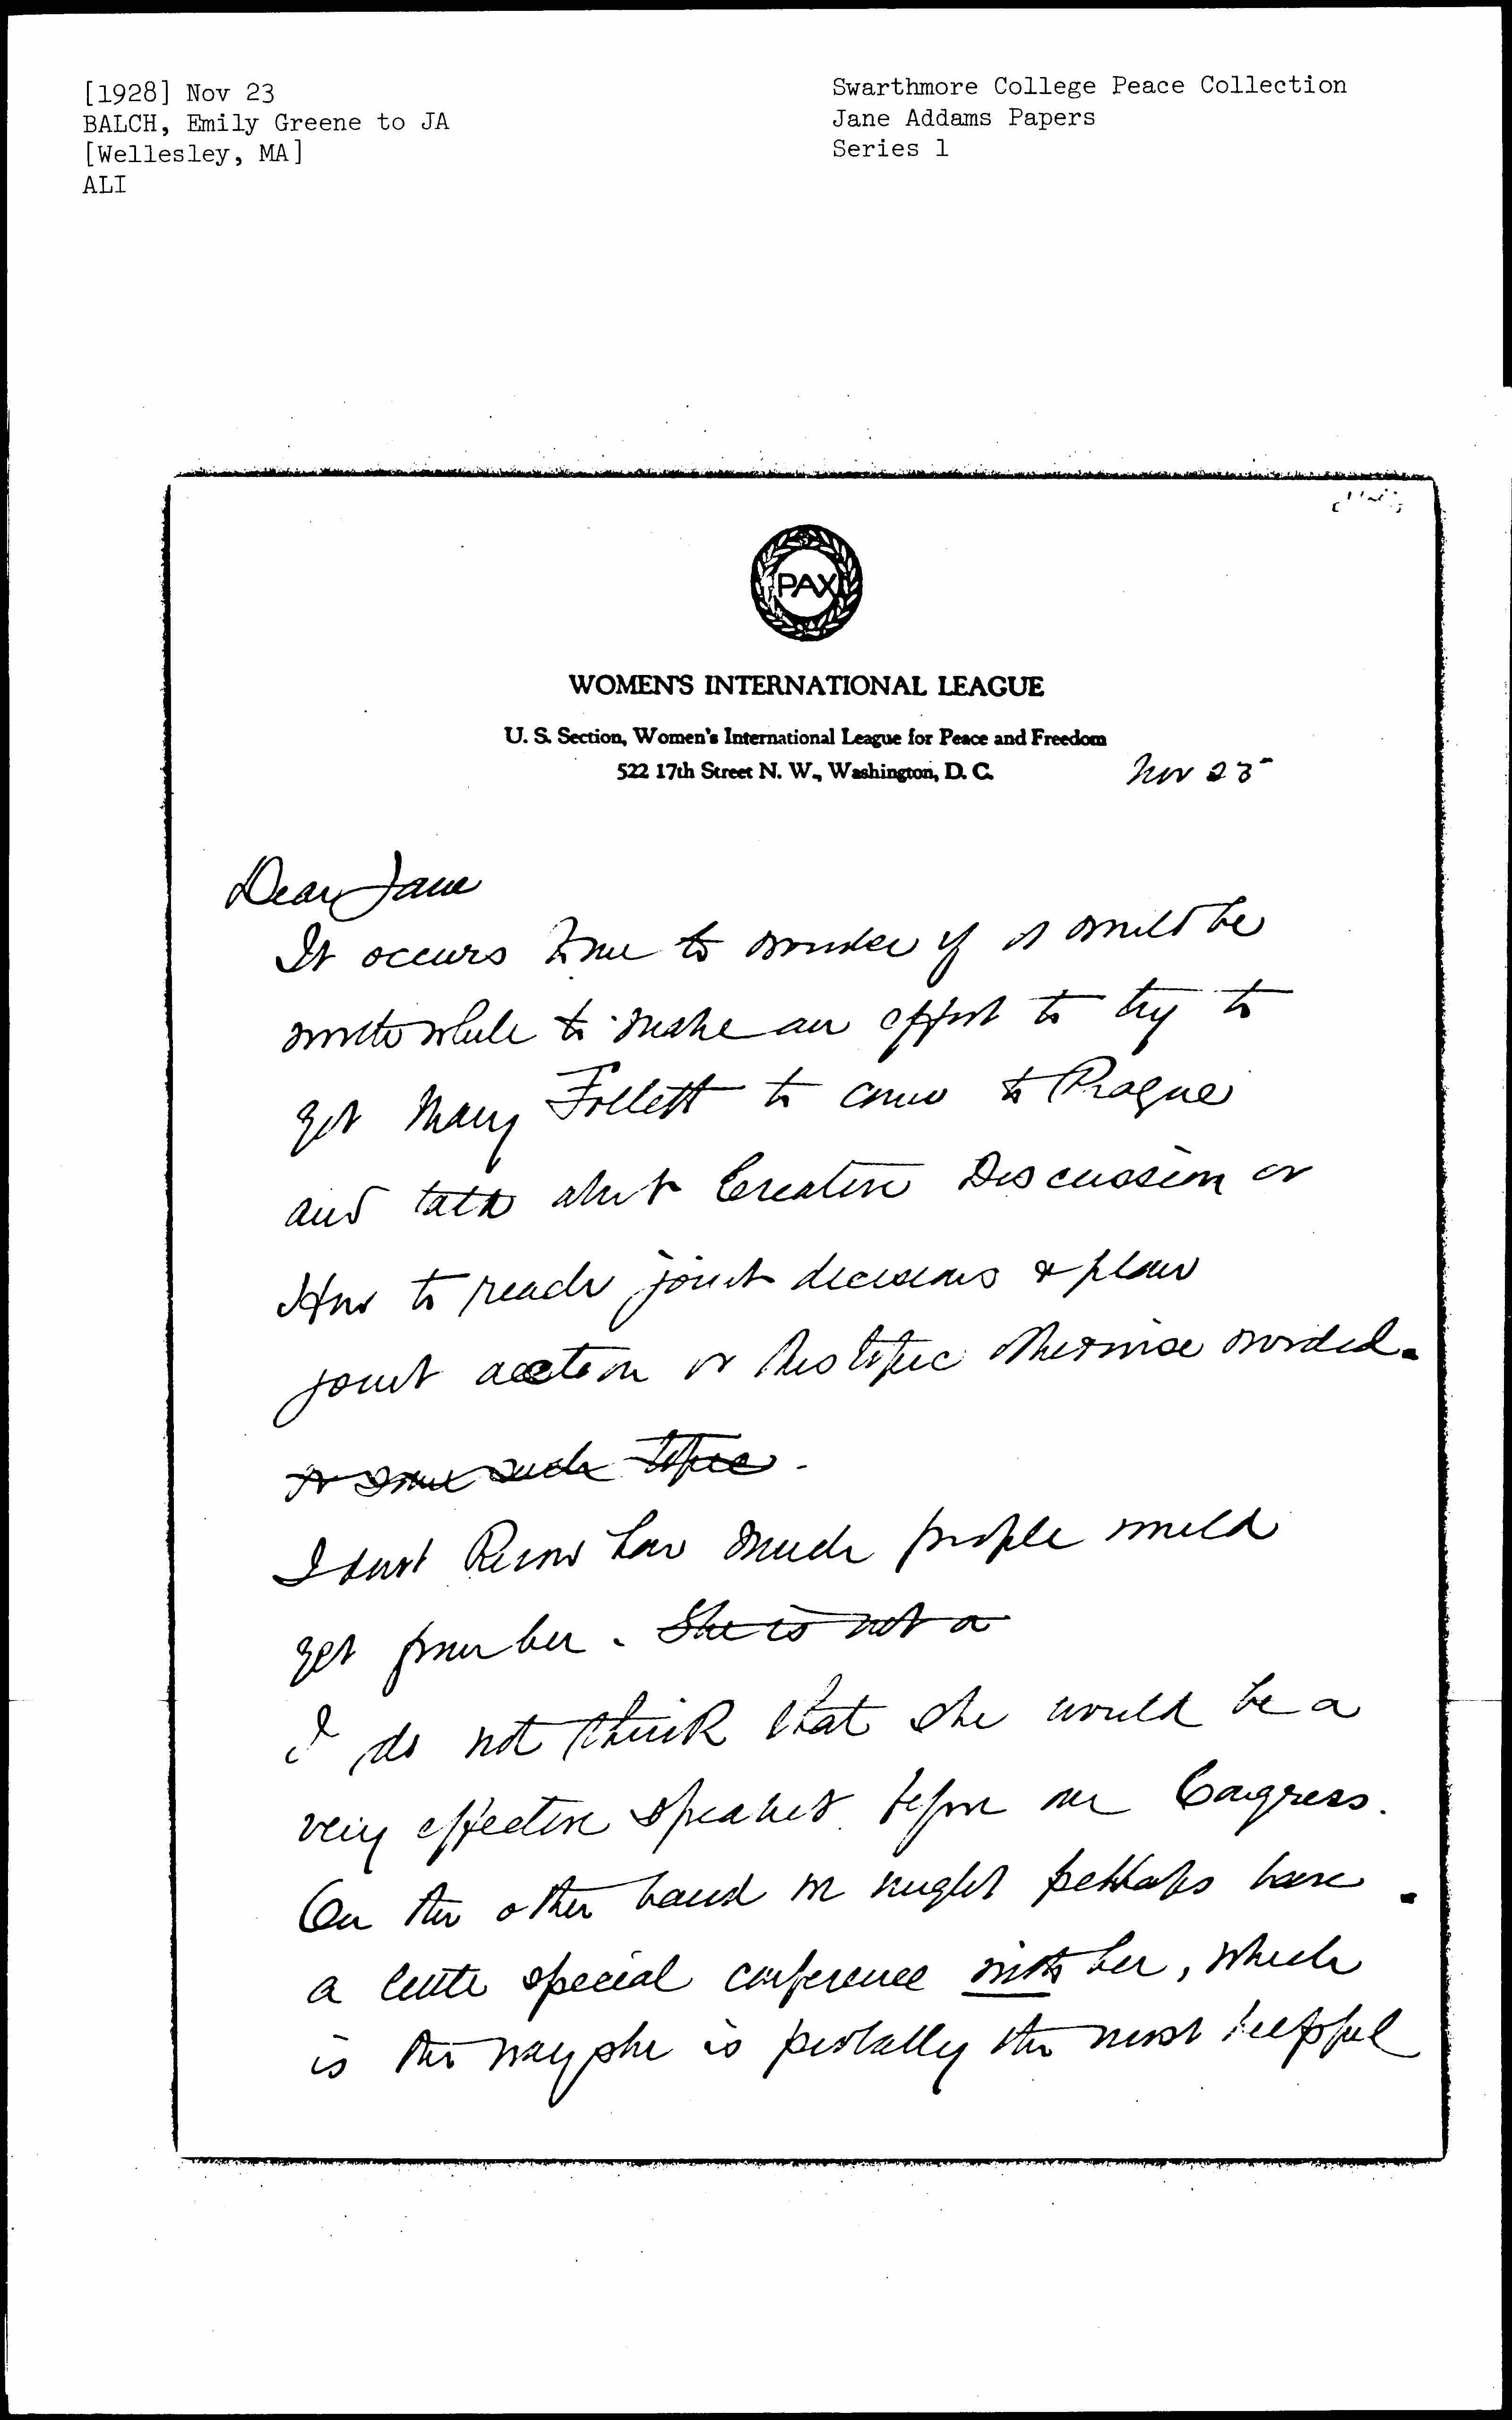 [1928] Nov 23
BALCH, Emily Greene to JA
[Wellesley, MA]
ALI
Swarthmore College Peace Collection
Jane Addams Papers
Series 1
PAX
WOMEN'S INTERNATIONAL LEAGUE
U. S. Section, Women's International League for Peace and Freedom
522 17th Street N. W., Washington, D. C.
Nov 23
Dear Jane
It occurs to me to wonder if it would be
worth while to make an effort to try to
get Mary Follett to come to Prague
and talk about Creative Discussion or
How to reach joint decisions & plan
joint action or this topic otherwise worded.
or some such topic.
I dont know how much people would
get from her. She is not a
I do not think that she would be a
very effective speaker before our Congress.
On the other hand we might perhaps have
a little special conference with her, which
is the way she is probably the most helpful